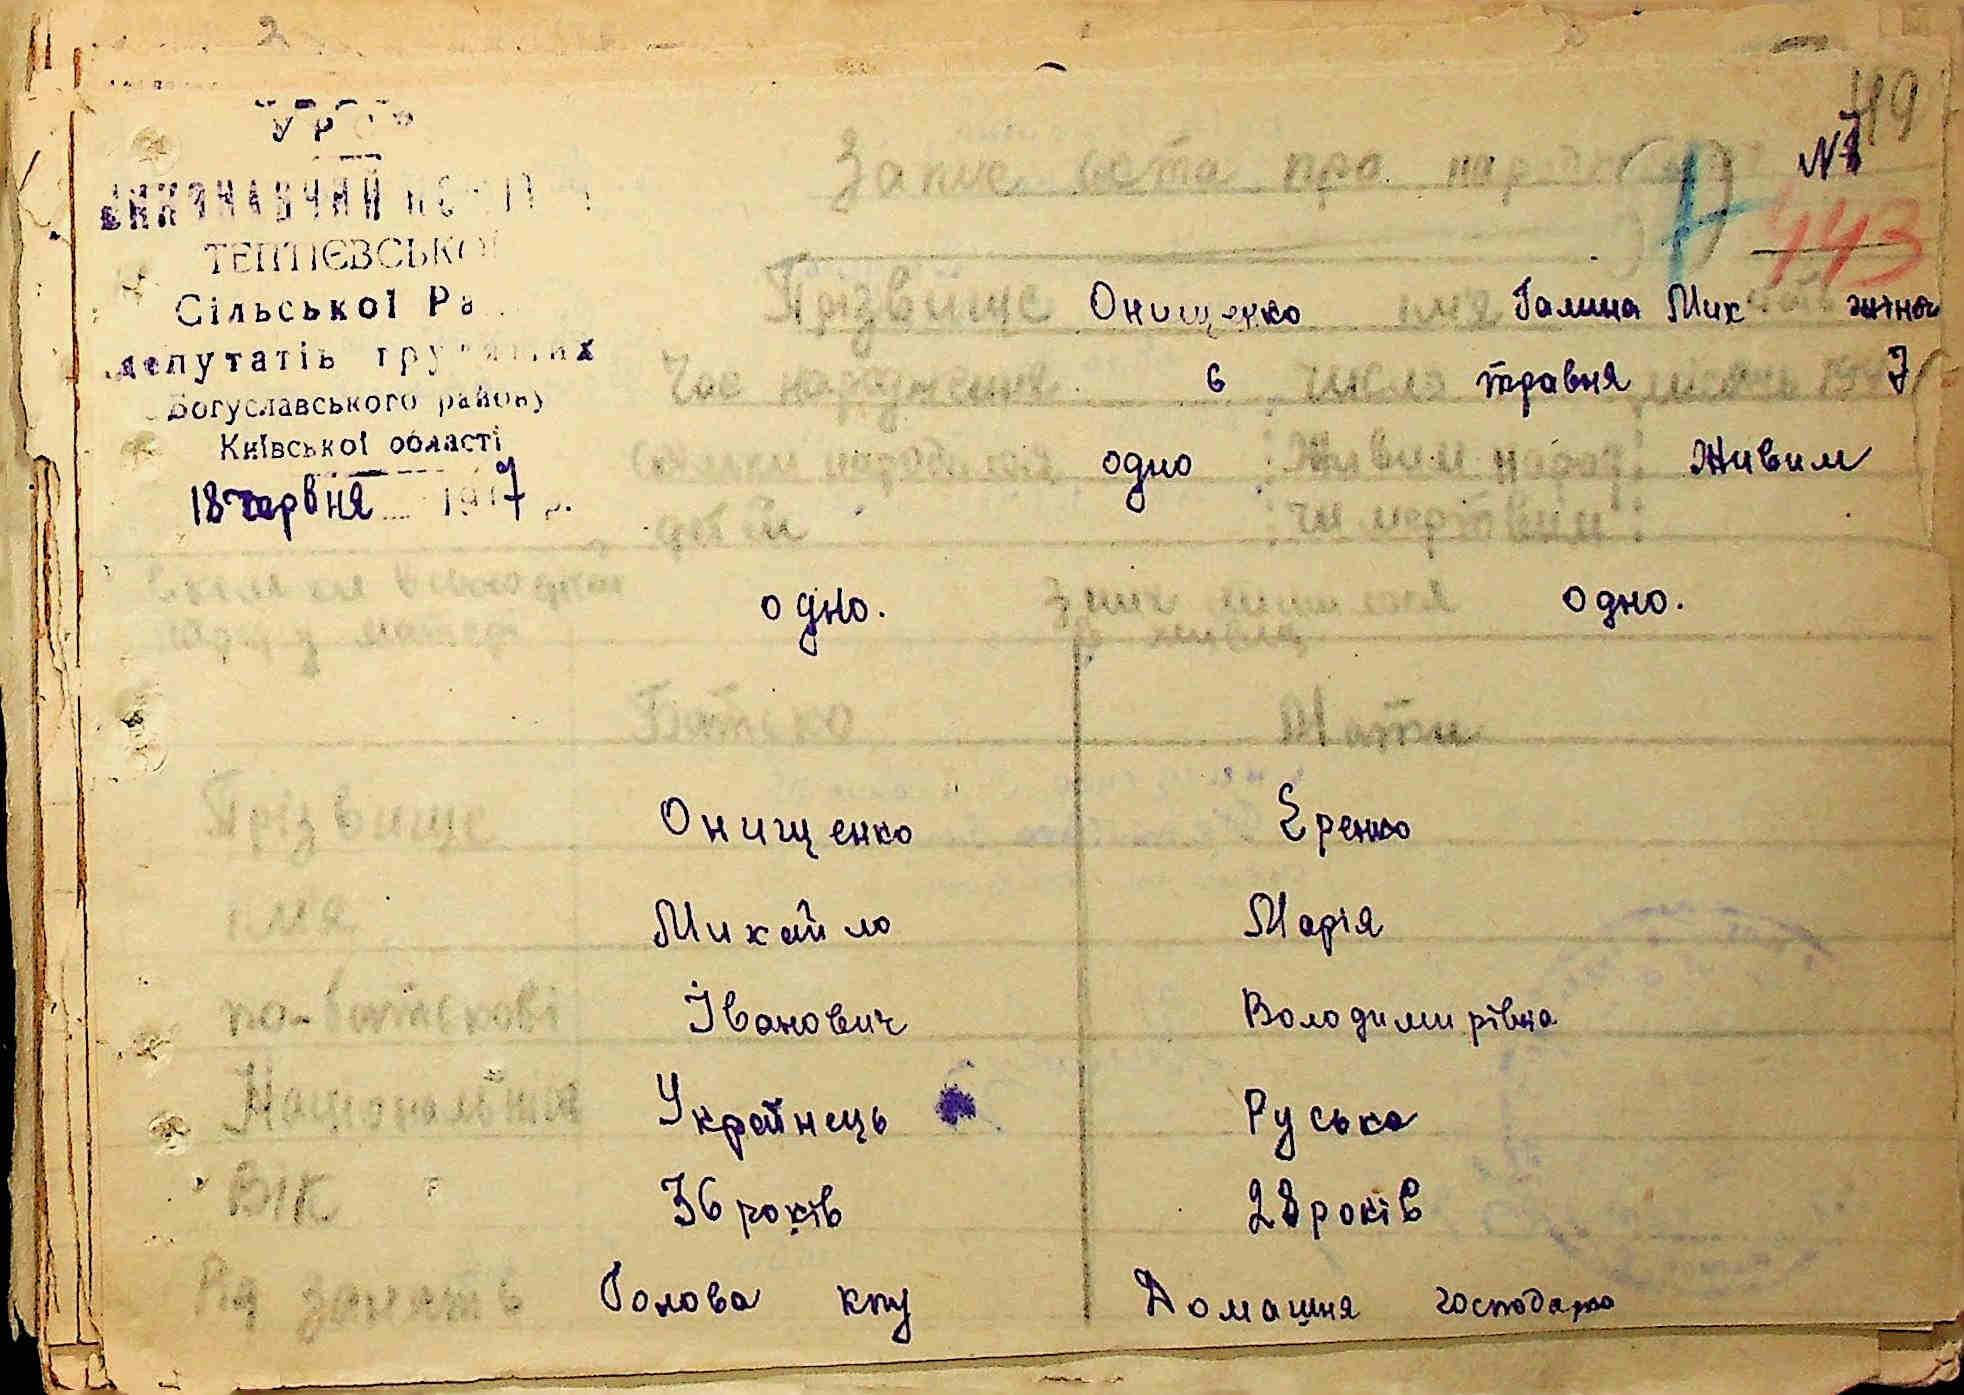 УРСР
ВИКОНАВЧИЙ КОМІТЕТ
ТЕПТІЄВСЬКОЇ
Сільської Ради
депутатів трудящих
Богуславського району
Київської області
18 червня 1947 р.
49
№ 8
443
Запис акта про народження
Прізвище Онищенко ім'я Галина Мих жіноч
Час народження 6 число травня місяць 1947
Скільки народилося одно Живим народ. Живим
дітей чи мертвим
одно. З них лишилося одно.
в живих
Батько Мати
Прізвище Онищенко Єренко
ім'я Михайло Марія
по-батькові Іванович Володимирівна
Національність Українець Руська
Вік 36 років 28 років
Рід занять Голова кпу Домашня господарка